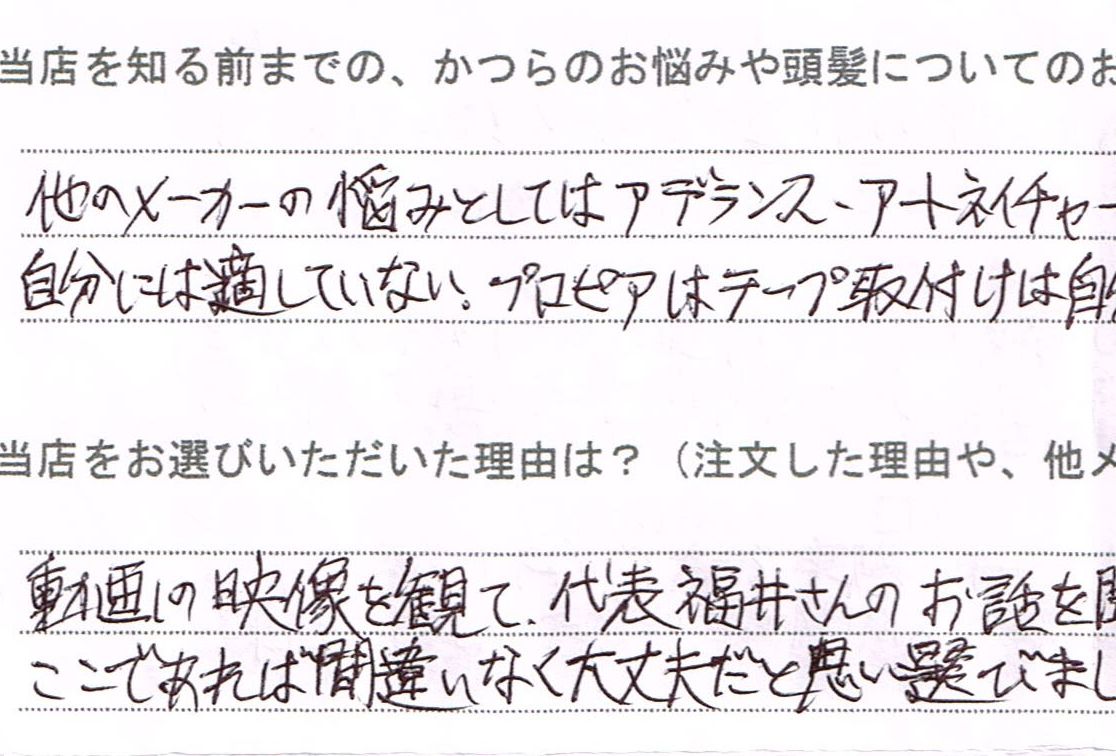 当店を知る前までの、かつらのお悩みや頭髪についてのお
他のメーカーの悩みとしてはアデランス、アートネイチャー
自分には適していない。プロピアはテープ取付けは自
当店をお選びいただいた理由は?(注文した理由や、他メ
動画の映像を観て、代表福井さんのお話を
ここであれば間違いなく大丈夫だと思いびまし